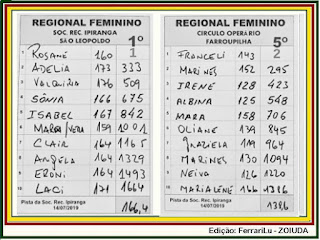 REGIONAL FEMININO
SOC. REC. IPIRANGA
SÃO LEOPOLDO
1º
1
1 ROSANE 160
2 ADELIA 173 333
3 VALQUIRIA 176 509
4 SÔNIA 166 675
5 ISABEL 167 842
6 MARA/VERA 159 1001
7 CLAIR 164 1165
8 ANGELA 164 1329
9 ERONI 164 1493
10 LACI 171 1664
Pista da Soc. Rec. Ipiranga
14/07/2019
166,4
REGIONAL FEMININO
CIRCULO OPERÁRIO
FARROUPILHA
5º
2
1 FRANCELI 143
2 MARINÊS 152 295
3 IRENE 128 423
4 ALBINA 125 548
5 MARA 158 706
6 OLIANE 139 845
7 GRAZIELA 119 964
8 MARINES 130 1094
9 NEIVA 126 1220
10 MARIALENE 166 1386
Pista da Soc. Rec. Ipiranga
14/07/2019
138,6
Edição: FerrariLu - ZOIUDA